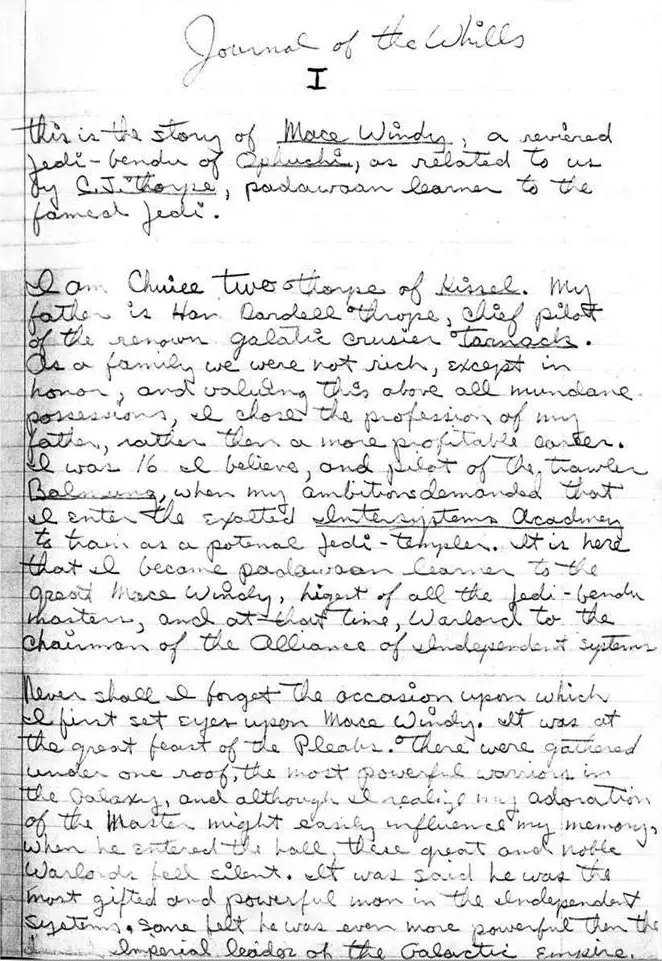 Journal of the Whills
I
this is the story of Mace Windy, a reviered
Jedi-bendu of Ophuchi, as related to us
by C.J. thorpe, padawaan learner to the
famed Jedi.
I am Chuiee two thorpe of Kissel. My
father is Han Dardell thrope, chief pilot
of the renown galatic crusier Tarnack.
As a family we were not rich, except in
honor, and valuing this above all mundane
possessions, I chose the profession of my
father, rather then a more profitable career.
I was 16 I believe, and pilot of the trawler
Balmung, when my ambitions demanded that
I enter the exalted Intersystems Acadmey
to train as a potenal Jedi-templer. It is here
that I became padawaan learner to the
great Mace Windy, higest of all the Jedi-bendu
masters, and at that time, Warlord to the
Chairman of the Alliance of Independent systems
Never shall I forget the occasion upon which
I first set eyes upon Mace Windy. It was at
the great feast of the Pleabs. There were gathered
under one roof, the most powerful warriors in
the Galaxy, and although I realize my adoration
of the Master might easily influence my memory,
when he entered the hall, these great and noble
Warlords fell silent. It was said he was the
most gifted and powerful man in the Independent
Systems. Some felt he was even more powerful then the
Imperial leader of the Galactic Empire.